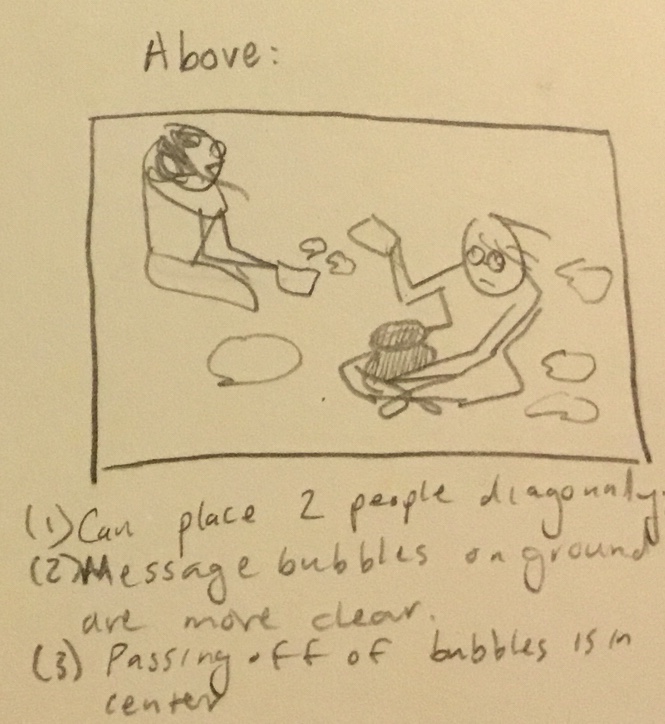 Above:
(1) Can place 2 people diagonally.
(2) Message bubbles on ground
are more clear.
(3) Passing off of bubbles is in
center